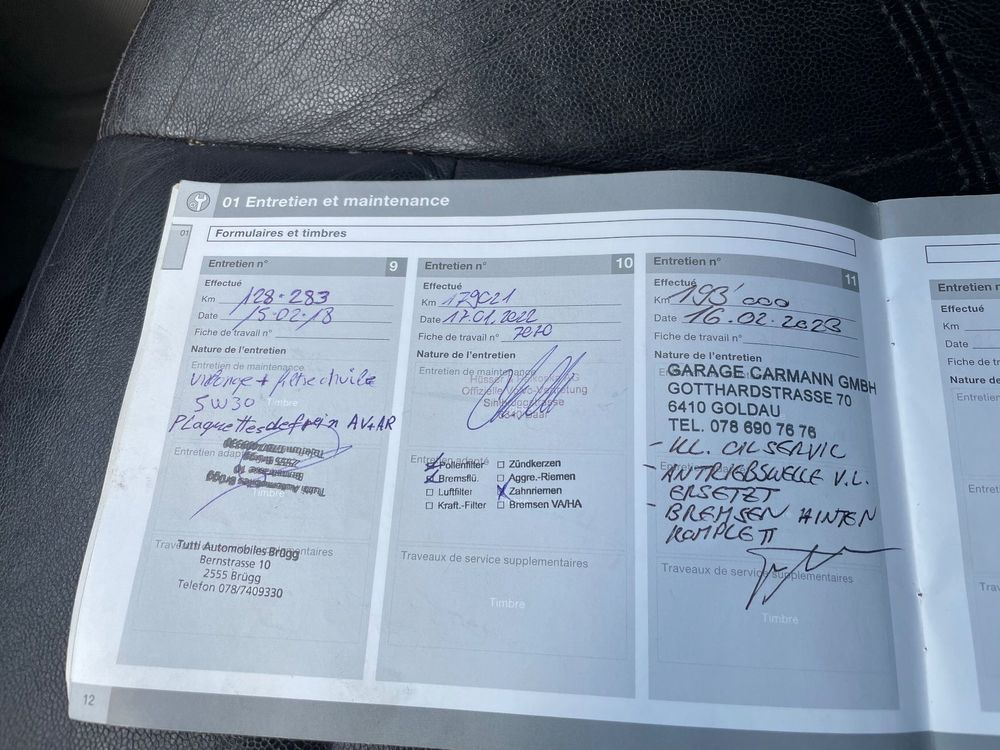 01 Entretien et maintenance
01
Formulaires et timbres
Entretien n° 9
Effectué
Km 128.283
Date 15.02.18
Fiche de travail n°
Nature de l'entretien
Entretien de maintenance
vidange + filtre huile
5W30
Timbre
Plaquettes de frein AV+AR
Entretien adapté
Timbre
Travaux de service supplémentaires
Tutti Automobiles Brügg
Bernstrasse 10
2555 Brügg
Telefon 078/7409330
Entretien n° 10
Effectué
Km 179021
Date 17.01.2022
Fiche de travail n° 7070
Nature de l'entretien
Entretien de maintenance
Offizielle Vertretung
Entretien adapté
Pollenfilter Zündkerzen
Bremsflü. Aggre.-Riemen
Luftfilter Zahnriemen
Kraft.-Filter Bremsen VA/HA
Traveaux de service supplementaires
Timbre
Entretien n° 11
Effectué
Km 193'000
Date 16.02.2023
Fiche de travail n°
Nature de l'entretien
GARAGE CARMANN GMBH
GOTTHARDSTRASSE 70
6410 GOLDAU
TEL. 078 690 76 76
- KL. OILSERVIC
- ANTRIEBSWELLE V.L.
ERSETZT
- BREMSEN HINTEN
KOMPLETT
Traveaux de service supplementaires
Timbre
Entretien n
Effectué
Km
Date
Fiche de tra
Nature de l'en
Entretien de
Entretien
12